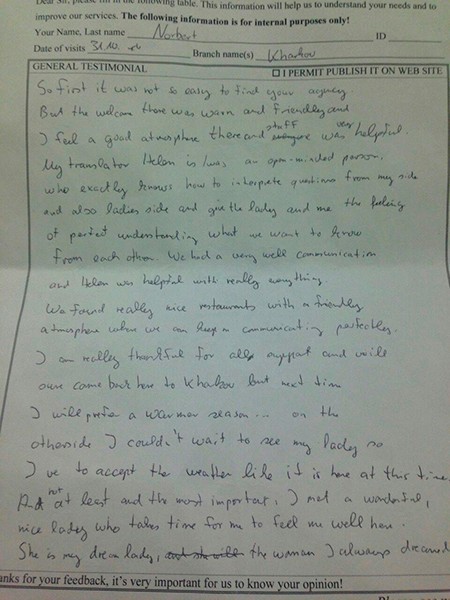 Dear Sir, please fill in the following table. This information will help us to understand your needs and to
improve our services. The following information is for internal purposes only!
Your Name, Last name Norbert ID
Date of visits 31.10. Branch name(s) Kharkov
GENERAL TESTIMONIAL ☐ I PERMIT PUBLISH IT ON WEB SITE
So first it was not so easy to find your agency.
But the welcome there was warm and friendley and
I feel a good atmosphere there and stuff everyone was very helpful.
My translator Helen is/was an open-minded person.
who exactly knows how to interprete questions from my side
and also ladies side and give the lady and me the feeling
of perfect understanding what we want to know
from each other. We had a very well communication
and Helen was helpful with really everything.
We found really nice restaurants with a friendly
atmosphere where we can keep a communicating perfectley.
I am really thankful for all support and will
come back here to Kharkov but next time
I will prefer a warmer season... on the
otherside I couldn't wait to see my lady so
I've to accept the weather like it is here at this time.
And not at least and the most important, I met a wonderful,
nice lady who takes time for me to feel me well here.
She is my dream lady, and she will the woman I always dreamed
anks for your feedback, it's very important for us to know your opinion!